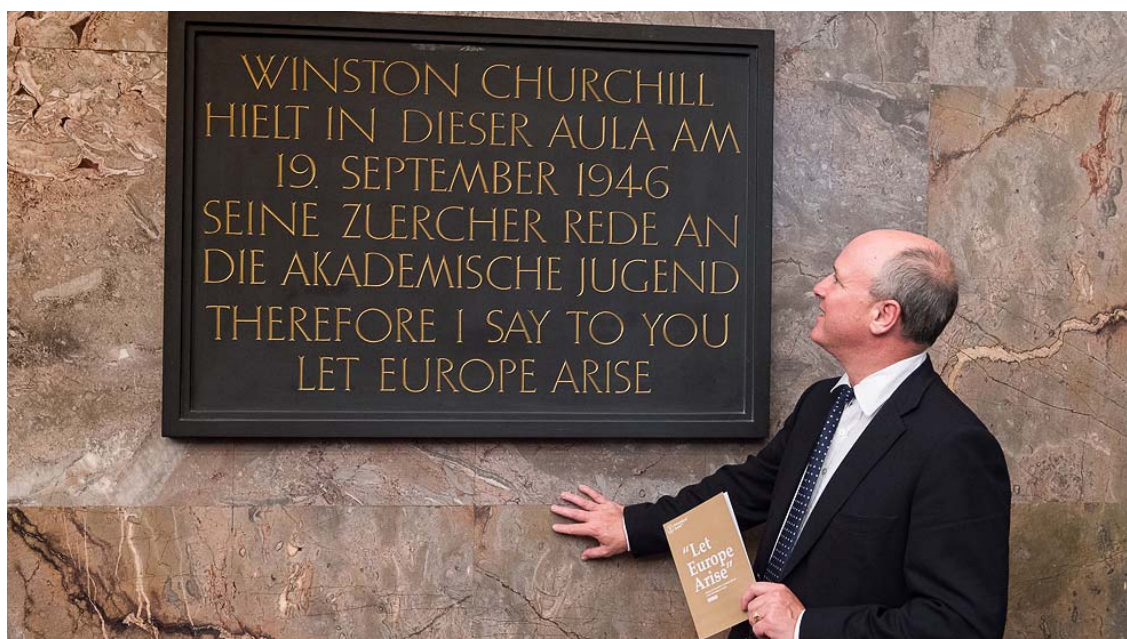 WINSTON CHURCHILL
HIELT IN DIESER AULA AM
19. SEPTEMBER 1946
SEINE ZUERCHER REDE AN
DIE AKADEMISCHE JUGEND
THEREFORE I SAY TO YOU
LET EUROPE ARISE
“Let
Europe
Arise”